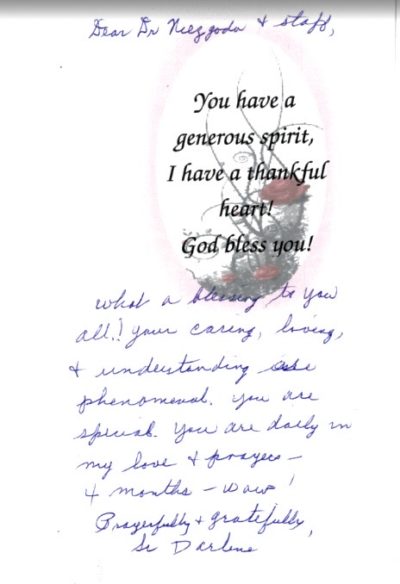 Dear Dr Niezgoda & staff,
You have a
generous spirit,
I have a thankful
heart!
God bless you!
what a blessing to you
all.! your caring, loving,
& understanding are
phenomenal. you are
special. you are daily in
my love & prayers –
4 months – wow!
Prayerfully & gratefully,
Sr Darlene